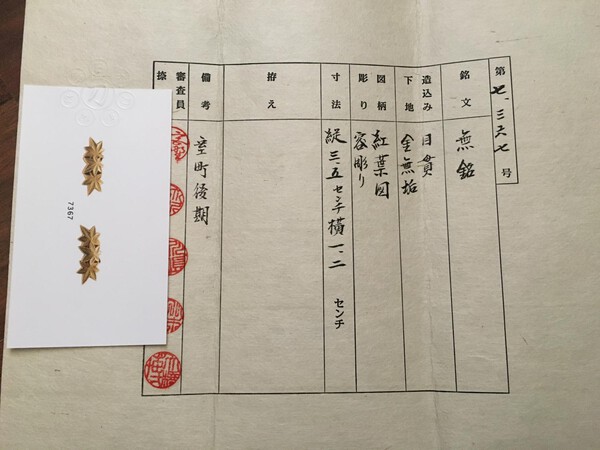 第七、三六七号
銘文 無銘
造込み 目貫
下地 金無垢
図柄 紅葉図
彫り 容彫り
寸法 縦三、五センチ横一、二 センチ
拵え
備考 室町後期
審査員
7367